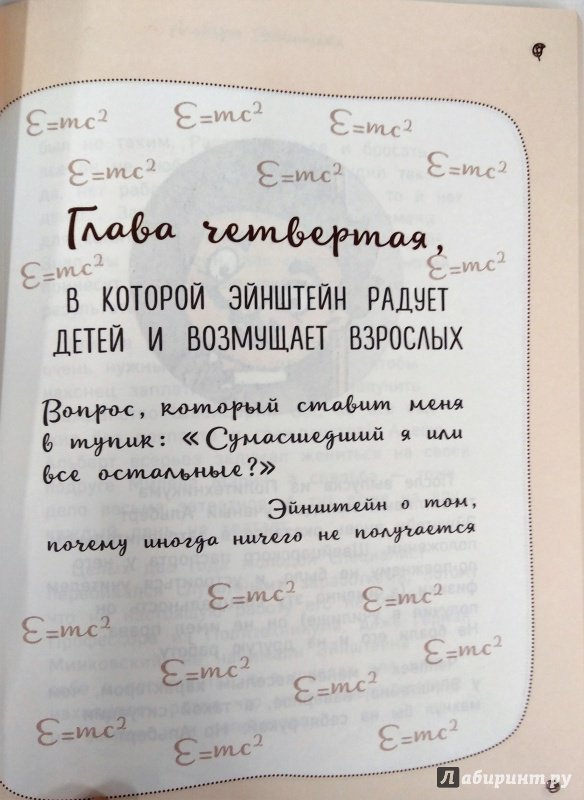 Ɛ=mc² Ɛ=mc² Ɛ=mc²
Ɛ=mc² Ɛ=mc² Ɛ=mc²
Глава четвертая,
Ɛ=mc² Ɛ=mc²
В КОТОРОЙ ЭЙНШТЕЙН РАДУЕТ
ДЕТЕЙ И ВОЗМУЩАЕТ ВЗРОСЛЫХ
Вопрос, который ставит меня
в тупик: «Сумасшедший я или
все остальные?»
Эйнштейн о том,
почему иногда ничего не получается
Ɛ=mc² Ɛ=mc²
Ɛ=mc² Ɛ=mc²
Ɛ=mc² Ɛ=mc²
Ɛ=mc² Ɛ=mc² Ɛ=mc²
Лабиринт.ру